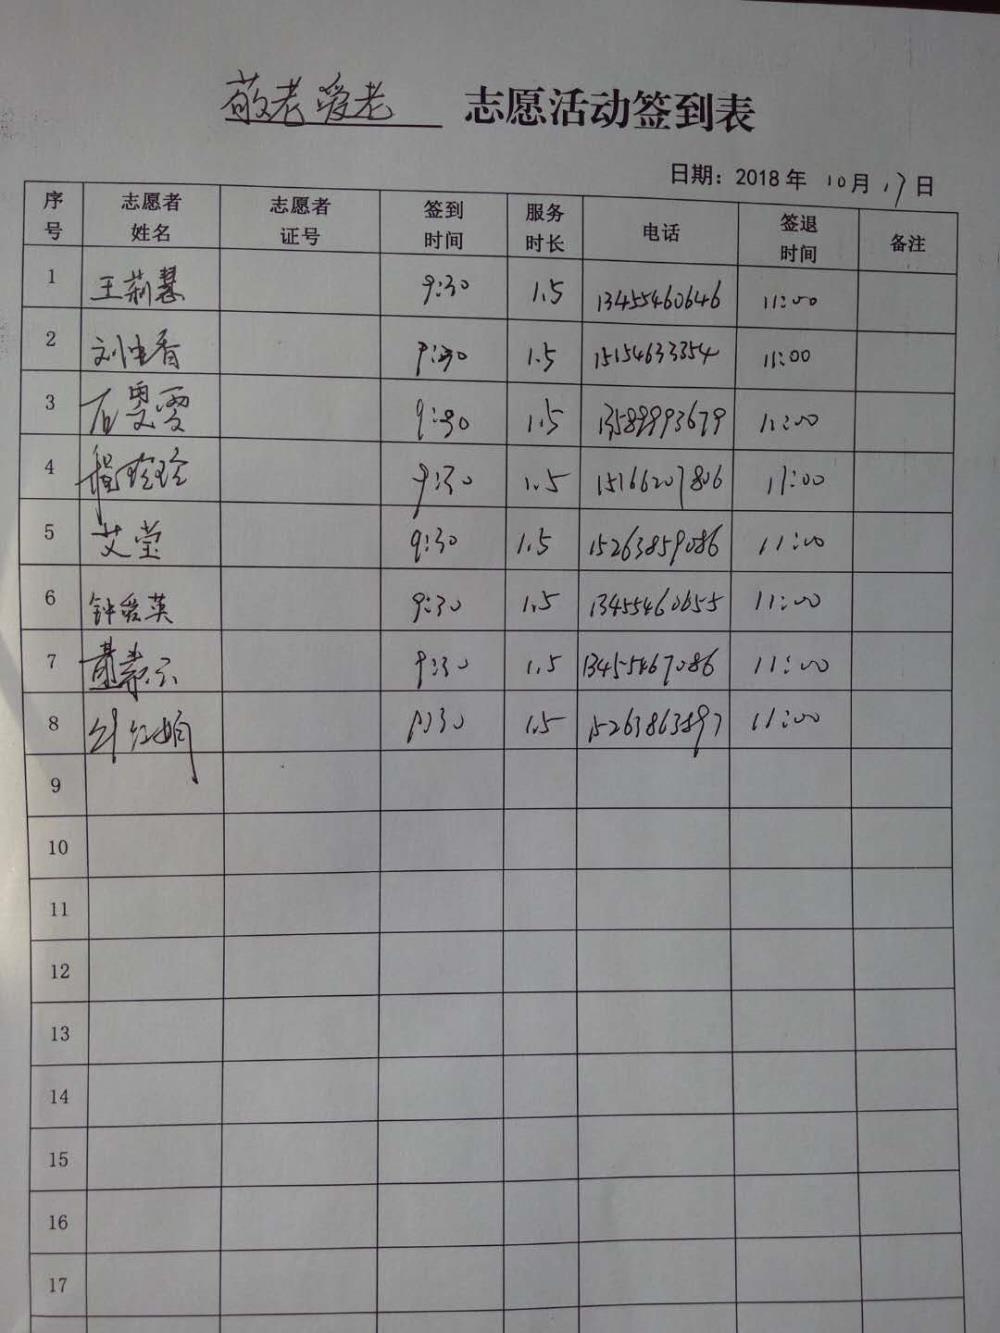 敬老爱老 志愿活动签到表
日期：2018年 10月 17日
序号 志愿者姓名 志愿者证号 签到时间 服务时长 电话 签退时间 备注
1 王莉慧 9:30 1.5 13455460646 11:00
2 刘虫香 9:30 1.5 15154633354 11:00
3 9:30 1.5 13589993679 11:00
4 程玲玲 9:30 1.5 15166207806 11:00
5 艾莹 9:30 1.5 15263859086 11:00
6 钟爱英 9:30 1.5 13455460655 11:00
7 9:30 1.5 13455467086 11:00
8 红娟 9:30 1.5 15263863897 11:00
9
10
11
12
13
14
15
16
17